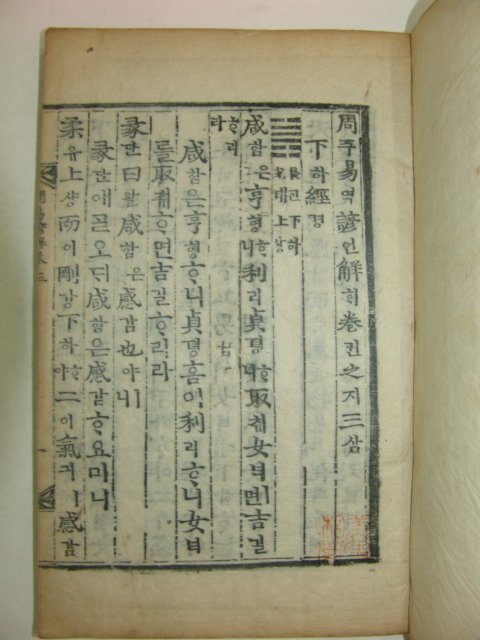 周쥬易역諺언解ᄒᆡ卷권之지三삼
下하經경
䷞ 艮간下하 兌태上샹
咸함은亨형ᄒᆞ니利리貞뎡ᄒᆞ니取ᄎᆔ女녀ㅣ면吉길
ᄒᆞ리라
咸함은亨형ᄒᆞ니貞뎡홈이利리ᄒᆞ니女녀
를取ᄎᆔᄒᆞ면吉길ᄒᆞ리라
彖단曰왈咸함은感감也야ㅣ니
彖단애ᄀᆞᆯ오ᄃᆡ咸함은感감ᄒᆞ요미니
柔유上샹而이剛강下하ᄒᆞ야二이氣긔ㅣ感감